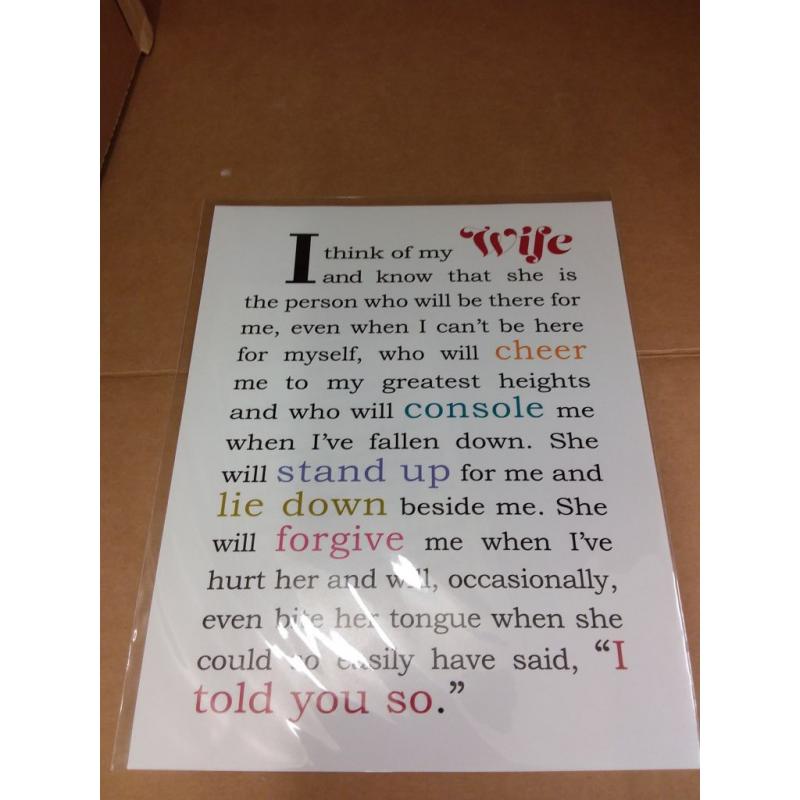 I think of my Wife
and know that she is
the person who will be there for
me, even when I can't be here
for myself, who will cheer
me to my greatest heights
and who will console me
when I've fallen down. She
will stand up for me and
lie down beside me. She
will forgive me when I've
hurt her and will, occasionally,
even bite her tongue when she
could so easily have said, “I
told you so.”